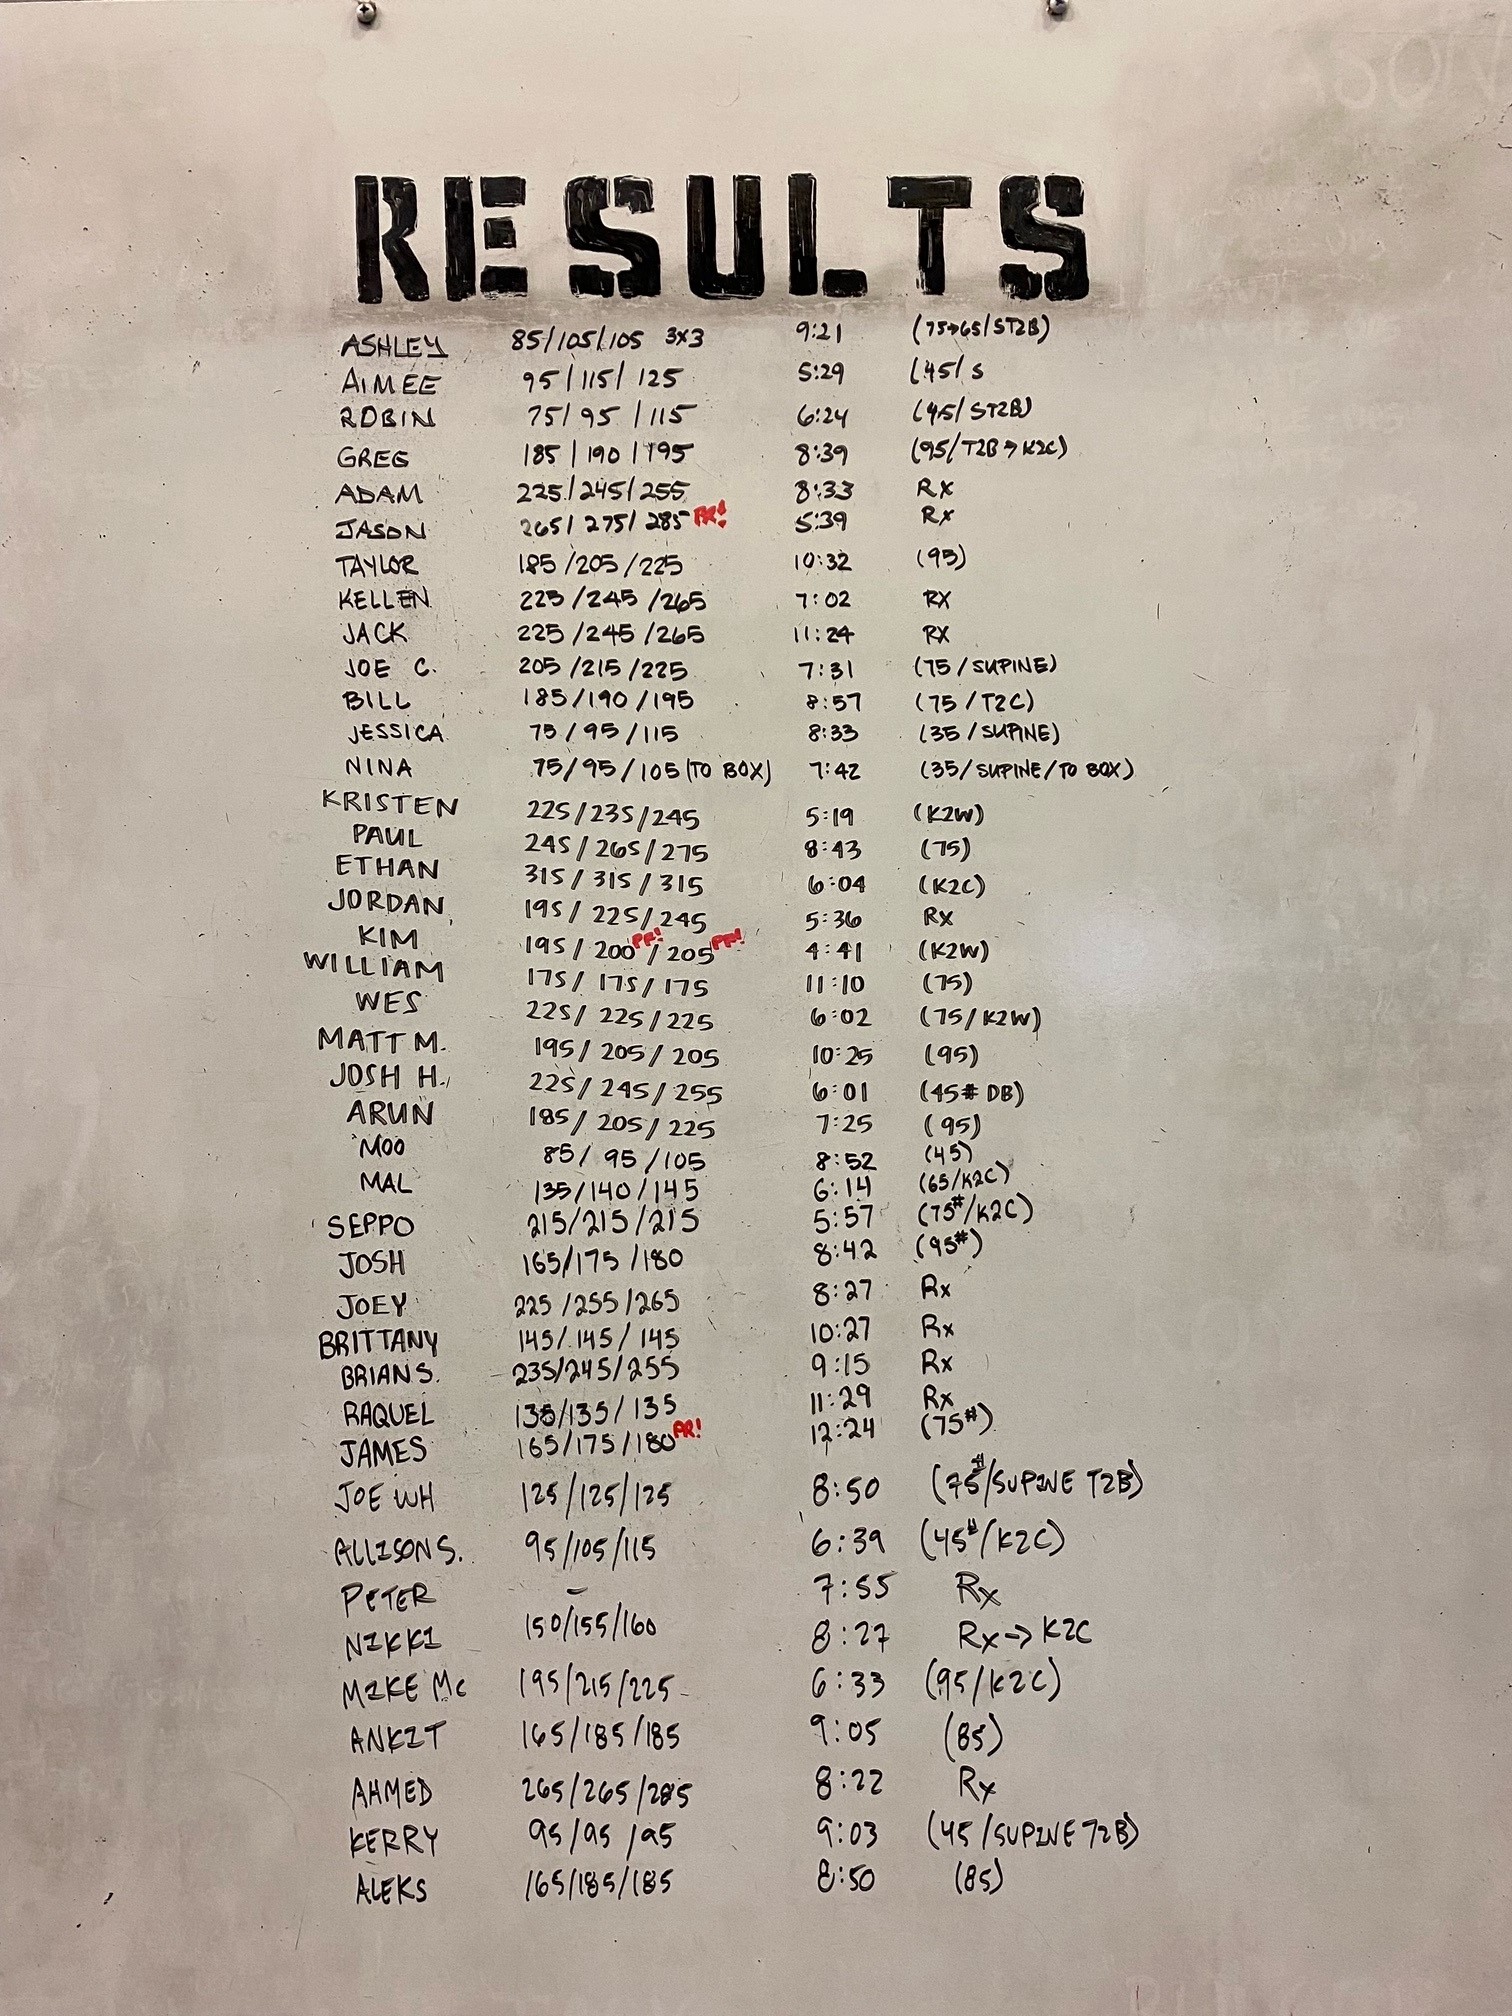 RESULTS
ASHLEY 85/105/105 3x3 9:21 (75→65/ST2B)
AIMEE 95/115/125 5:29 (45/S
ROBIN 75/95/115 6:24 (45/ST2B)
GREG 185/190/195 8:39 (95/T2B→K2C)
ADAM 225/245/255 8:33 Rx
JASON 265/275/285 PR! 5:39 Rx
TAYLOR 185/205/225 10:32 (95)
KELLEN 225/245/265 7:02 RX
JACK 225/245/265 11:24 RX
JOE C. 205/215/225 7:31 (75/SUPINE)
BILL 185/190/195 8:57 (75/T2C)
JESSICA 75/95/115 8:33 (35/SUPINE)
NINA 75/95/105 (TO BOX) 7:42 (35/SUPINE/TO BOX)
KRISTEN 225/235/245 5:19 (K2W)
PAUL 245/265/275 8:43 (75)
ETHAN 315/315/315 6:04 (K2C)
JORDAN 195/225/245 5:36 RX
KIM 195/200 PR!/205 PR! 4:41 (K2W)
WILLIAM 175/175/175 11:10 (75)
WES 225/225/225 6:02 (75/K2W)
MATT M. 195/205/205 10:25 (95)
JOSH H. 225/245/255 6:01 (45# DB)
ARUN 185/205/225 7:25 (95)
MOO 85/95/105 8:52 (45)
MAL 135/140/145 6:14 (65/K2C)
SEPPO 215/215/215 5:57 (75#/K2C)
JOSH 165/175/180 8:42 (95#)
JOEY 225/255/265 8:27 Rx
BRITTANY 145/145/145 10:27 Rx
BRIAN S. 235/245/255 9:15 Rx
RAQUEL 135/135/135 11:29 Rx
JAMES 165/175/180 PR! 12:24 (75#)
JOE WH 125/125/125 8:50 (75#/SUPINE T2B)
ALLISON S. 95/105/115 6:39 (45#/K2C)
PETER – 7:55 Rx
NIKKI 150/155/160 8:27 Rx→K2C
MIKE Mc 195/215/225 6:33 (95/K2C)
ANKIT 165/185/185 9:05 (85)
AHMED 265/265/285 8:22 Rx
KERRY 95/95/95 9:03 (45/SUPINE T2B)
ALEKS 165/185/185 8:50 (85)